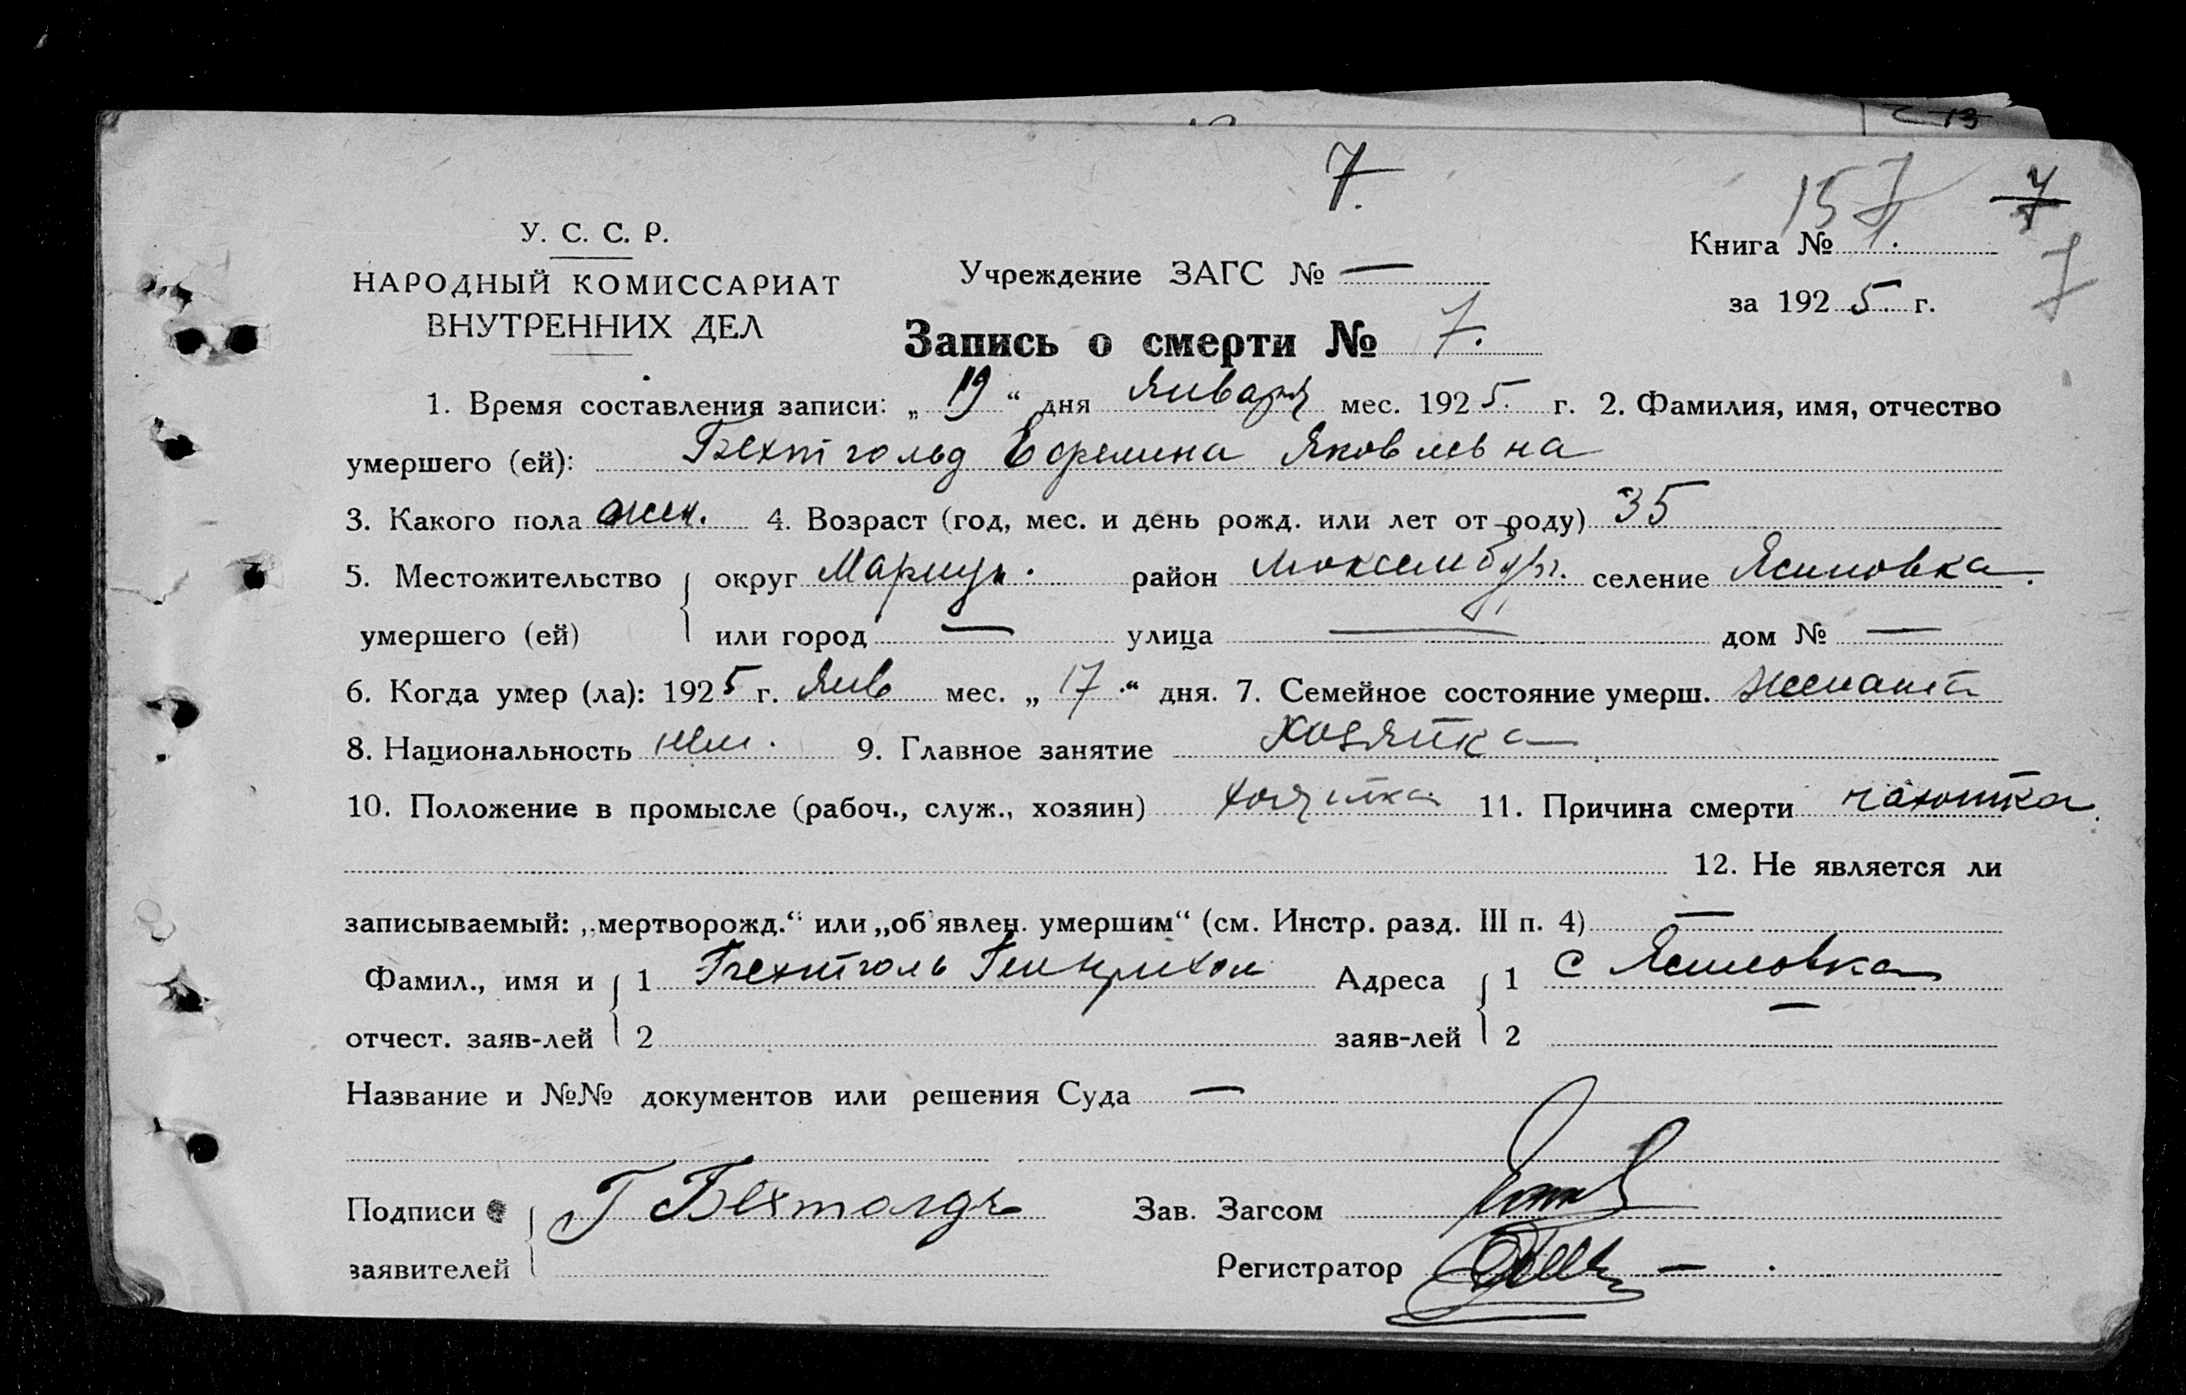 13
7.
157 7
У. С. С. Р.
НАРОДНЫЙ КОМИССАРИАТ
ВНУТРЕННИХ ДЕЛ
Учреждение ЗАГС № —
Книга № 1.
7
за 1925. г.
Запись о смерти № 7.
1. Время составления записи: „19“ дня Января мес. 1925. г. 2. Фамилия, имя, отчество
умершего (ей): Бехтгольд Ефремина Яковлевна
3. Какого пола жен. 4. Возраст (год, мес. и день рожд. или лет от роду) 35
5. Местожительство { округ Мариуп. район Люксембург. селение Ясиновка.
умершего (ей) или город — улица — дом № —
6. Когда умер (ла): 1925 г. Янв мес. „17“ дня. 7. Семейное состояние умерш.
8. Национальность нем. 9. Главное занятие хозяйка
10. Положение в промысле (рабоч., служ., хозяин) хозяйка 11. Причина смерти чахотка.
12. Не является ли
записываемый: „мертворожд.“ или „об'явлен. умершим“ (см. Инстр. разд. III п. 4) —
Фамил., имя и { 1 Бехтголь Адреса { 1 С Ясиновка
отчест. заяв-лей 2 заяв-лей 2 —
Название и №№ документов или решения Суда —
Подписи { Г Бехтолдъ Зав. Загсом
заявителей Регистратор